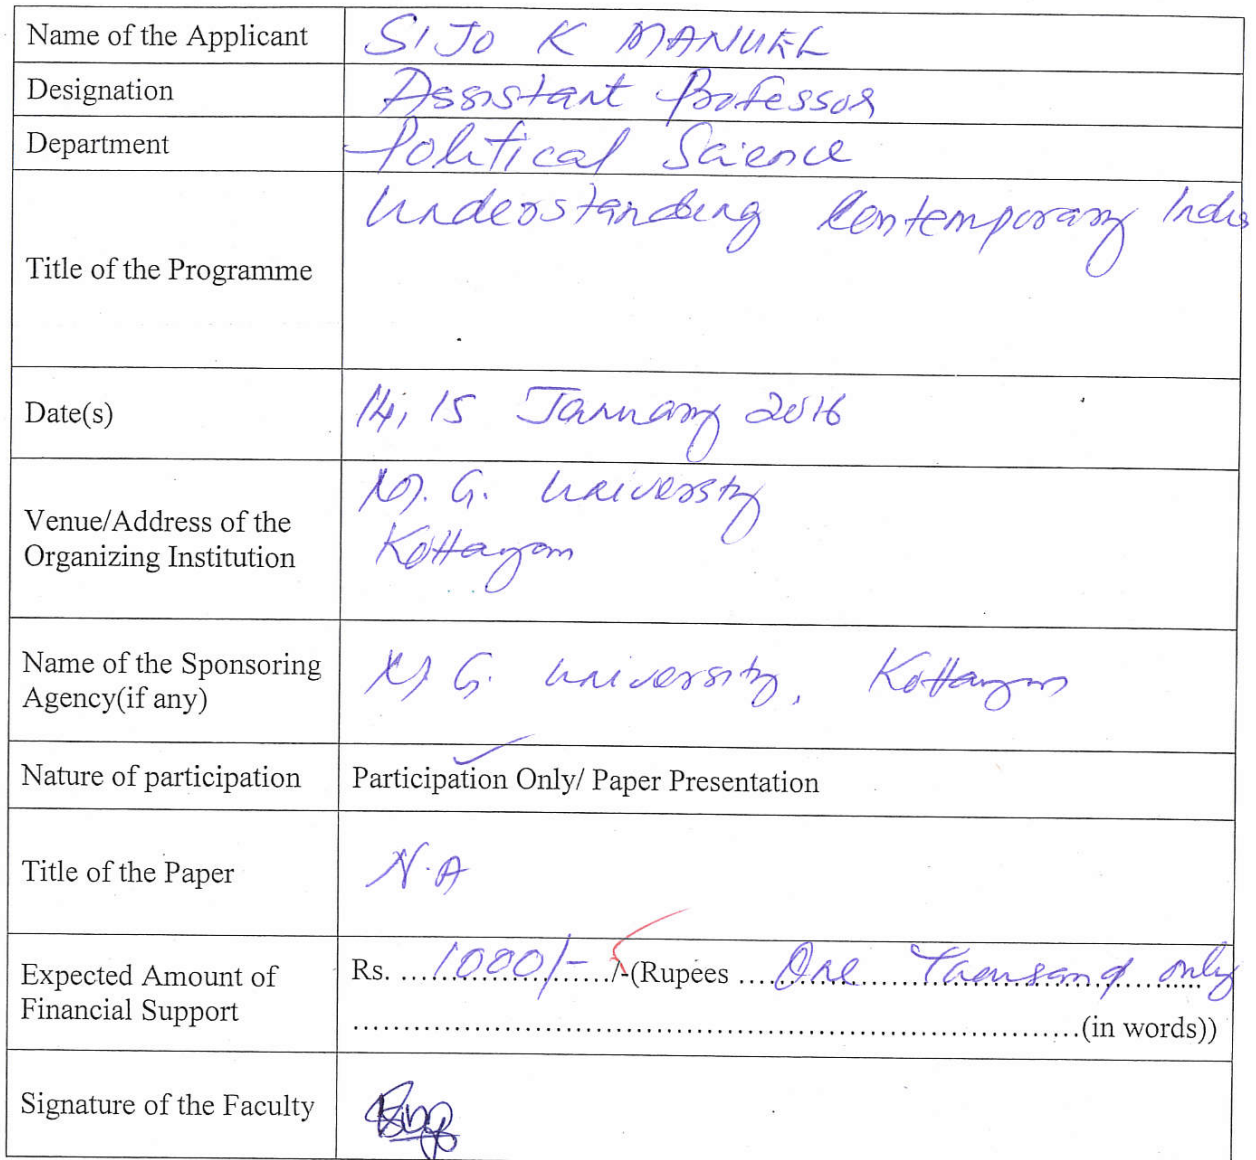 Name of the Applicant SIJO K MANUEL
Designation Assistant Professor
Department Political Science
Title of the Programme Understanding Contemporary India
Date(s) 14, 15 January 2016
Venue/Address of the M.G. University
Organizing Institution Kottayam
Name of the Sponsoring
Agency(if any) M G. University, Kottayam
Nature of participation Participation Only/ Paper Presentation
Title of the Paper N.A
Expected Amount of Rs. ...1000/-.../-(Rupees ...One Thousand only
Financial Support ...(in words))
Signature of the Faculty